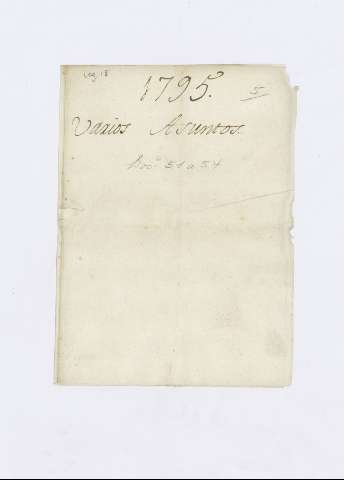 Leg 18
1795.
5
Varios Asuntos.
Doc.s 51 a 54